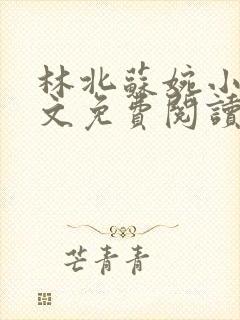 林北蘇婉小
文免費閱讀
芒青青